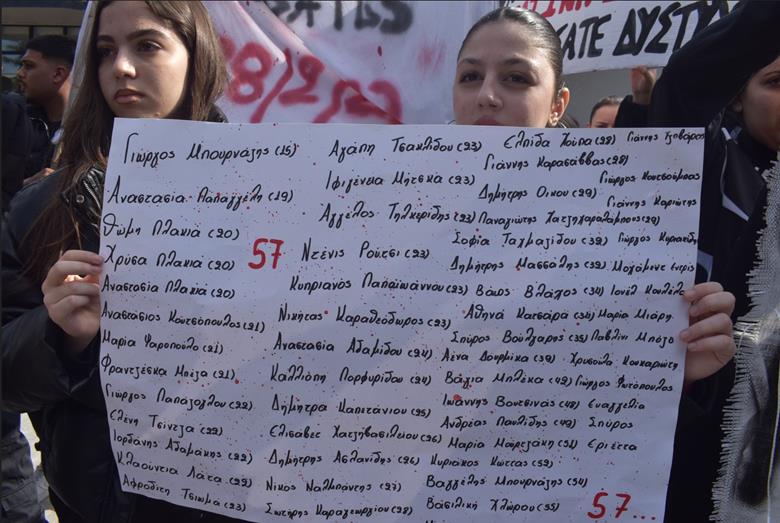 28/2/23
ΑΤΕ ΔΥΣΤΥ
Γιώργος Μπουρνάζης (15)
Αναστασία Παπαγγέλη (19)
Θώμη Πλακιά (20)
Χρύσα Πλακιά (20)
Αναστασία Πλακιά (20)
Αναστάσιος Κουτσόπουλος (21)
Μαρία Ψαροπούλο (21)
Φραντζέσκα Μπέζα (21)
Γιώργος Παπάζογλου (22)
Ελένη Τσίντζα (22)
Ιορδάνης Αδαμάκης (22)
Κλαούντια Λάτα (22)
Αφροδίτη Τσιωμά (23)
57
Αγάπη Τσακλίδου (23)
Ιφιγένεια Μήτσκα (23)
Άγγελος Τηλκερίδης (23)
Ντένις Ρούτσι (23)
Κυπριανός Παπαϊωάννου (23)
Νικήτας Καραθεόδωρος (23)
Αναστασία Αδαμίδου (24)
Καλλιόπη Πορφυρίδου (24)
Δήμητρα Καπετάνιου (25)
Ελισάβετ Χατζηβασιλείου (26)
Δημήτρης Ασλανίδης (26)
Νίκος Ναλμπάντης (27)
Σωτήρης Καραγεωργίου (28)
Ελπίδα Χούπα (28)
Γιάννης Καρασάββας (28)
Δημήτρης Οικου (29)
Παναγιώτης Χατζηχαραλάμπους (29)
Σοφία Ταχμαζίδου (32)
Δημήτρης Μασσάλης (32)
Βάιος Βλάχος (34)
Αθηνά Κατσάρα (34)
Σπύρος Βούλγαρης (35)
Λένα Δουρμίκα (39)
Βάγια Μπλέκα (42)
Ιωάννης Βουτσινάς (48)
Ανδρέας Παυλίδης (49)
Μαρία Μουρτζάκη (51)
Κυριάκος Κώττας (52)
Βαγγέλης Μπουρνάζης (54)
Βασιλική Χλώρου (55)
Γιάννης Τζοβάρας
Γιώργος Κουτσούμπας
Γιάννης Καριώτης
Γιώργος Κυριακίδη
Μοχάμεντ Εντρίς
Ιονέλ Κουλέλα
Μαρία Μιάρη
Παβλίνι Μπόζο
Χρυσούλα Κουκαριώτη
Γιώργος Φωτόπουλος
Ευαγγελία
Σπύρος
Εριέττα
57...